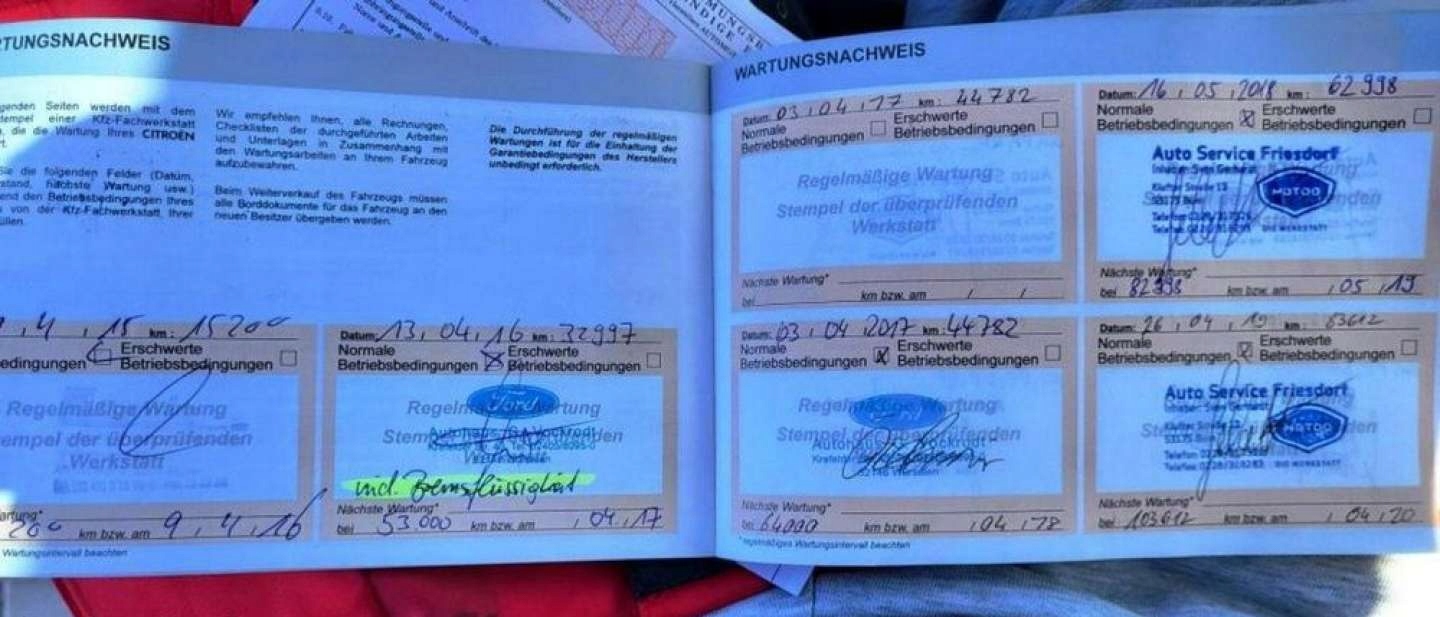 RTUNGSNACHWEIS
genden Seiten werden mit dem
tempel einer Kfz-Fachwerkstatt
die die Wartung Ihres CITROËN
Sie die folgenden Felder (Datum,
stand, nächste Wartung usw.)
end den Betriebsbedingungen Ihres
von der Kfz-Fachwerkstatt Ihrer
üllen.
Wir empfehlen Ihnen, alle Rechnungen,
Checklisten der durchgeführten Arbeiten
und Unterlagen in Zusammenhang mit
den Wartungsarbeiten an Ihrem Fahrzeug
aufzubewahren.
Beim Weiterverkauf des Fahrzeugs müssen
alle Borddokumente für das Fahrzeug an den
neuen Besitzer übergeben werden.
Die Durchführung der regelmäßigen
Wartungen ist für die Einhaltung der
Garantiebedingungen des Herstellers
unbedingt erforderlich.
4 , 15 km: 15200
Erschwerte
edingungen Betriebsbedingungen
Regelmäßige Wartung
tempel der überprüfenden
Werkstatt
artung*
200 km bzw. am 9, 4, 16
Wartungsintervall beachten
Datum: 13, 04, 16 km: 32997
Normale Erschwerte
Betriebsbedingungen Betriebsbedingungen
Ford
Regelmäßige Wartung
Stempel der überprüfenden
Autohaus
incl. Bremsflüssigkeit
Nächste Wartung*
bei 53.000 km bzw. am , 04, 17
WARTUNGSNACHWEIS
Datum: 03, 04, 17 km: 44782
Normale Erschwerte
Betriebsbedingungen Betriebsbedingungen
Regelmäßige Wartung
Stempel der überprüfenden
Werkstatt
Nächste Wartung*
bei km bzw. am / /
Datum: 16, 05, 2018 km: 62998
Normale Erschwerte
Betriebsbedingungen Betriebsbedingungen
Auto Service Friesdorf
MOTOO
DIE WERKSTATT
Nächste Wartung*
bei 82998 km bzw. am , 05, 19
Datum: 03, 04, 2017 km: 44782
Normale Erschwerte
Betriebsbedingungen Betriebsbedingungen
Regelmäßige Wartung
Stempel der überprüfenden
Autohaus
Nächste Wartung*
bei 64000 km bzw. am , 04, 18
*regelmäßiges Wartungsintervall beachten
Datum: 26, 04, 19 km: 83612
Normale Erschwerte
Betriebsbedingungen Betriebsbedingungen
Auto Service Friesdorf
MOTOO
DIE WERKSTATT
Nächste Wartung*
bei 103612 km bzw. am , 04, 20